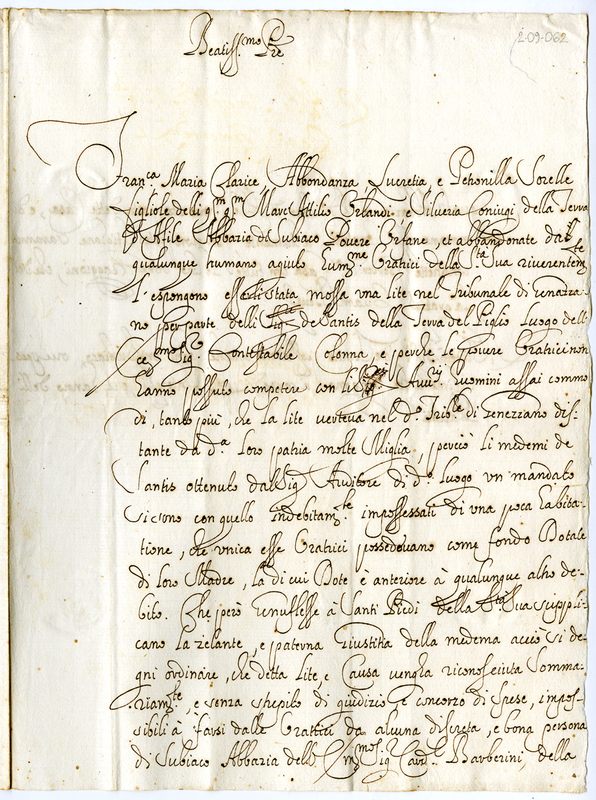 2-09-062
Beatiss.mo Pre
Fran.ca Maria Clarice, Abbondanza, Lucretia, e Petronilla Sorelle
figliole delli qm qm Marc'Attilio Orlandi, e Silveria Coniugi della Terra
d'Afile Abbazia di Subiaco Povere Orfane, et abbandonate dal
qualunque humano agiuto Hum.me Oratrici della S.tà Sua riverentem.te
l'espongono esserli stata mossa una lite nel Tribunale di Genazza-
no per parte delli de Santis della Terra del Piglio Luogo dell'
Ecc.mo Sig. Contestabile Colonna, e perche le Povere Oratrici non
hanno possuto competere con li Avv.rij huomini assai commo
di, tanto più, che la lite verteva nel d.o Trib.le di Genezzano dis-
tante da d.a loro patria molte Miglia, perciò li medemi de
Santis ottenuto dal Sig. Auditore di d.o luogo un mandato
si sono con quello indebitam.te impossessati di una poca habita-
tione, che unica esse Oratrici possedevano come fondo Dotale
di loro Madre, la di cui Dote è anteriore à qualunque altro de-
bito. Che però genuflesse à Santi Piedi della S.tà Sua suppli-
cano la zelante, e paterna Giustitia della medema acciò si de-
gni ordinare, che detta lite, e Causa venga riconosciuta somma-
riam.te, e senza strepito di giudizio, e concorzo di spese, impos-
sibili à farsi dalle Oratrici da alcuna discreta, e bona persona
di Subiaco Abbazia dell' Em.mo Sig. Card. Barberini, della